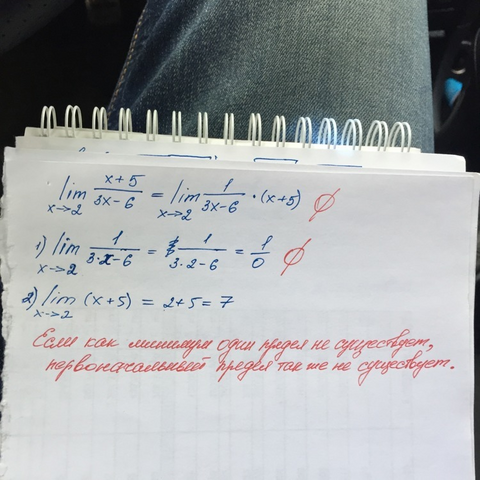 lim x→2 x+5/3x-6 = lim x→2 1/3x-6 · (x+5) ∅
1) lim x→2 1/3·x-6 = 1/3·2-6 = 1/0 ∅
2) lim x→2 (x+5) = 2+5 = 7
Если как минимум один предел не существует,
первоначальный предел так же не существует.